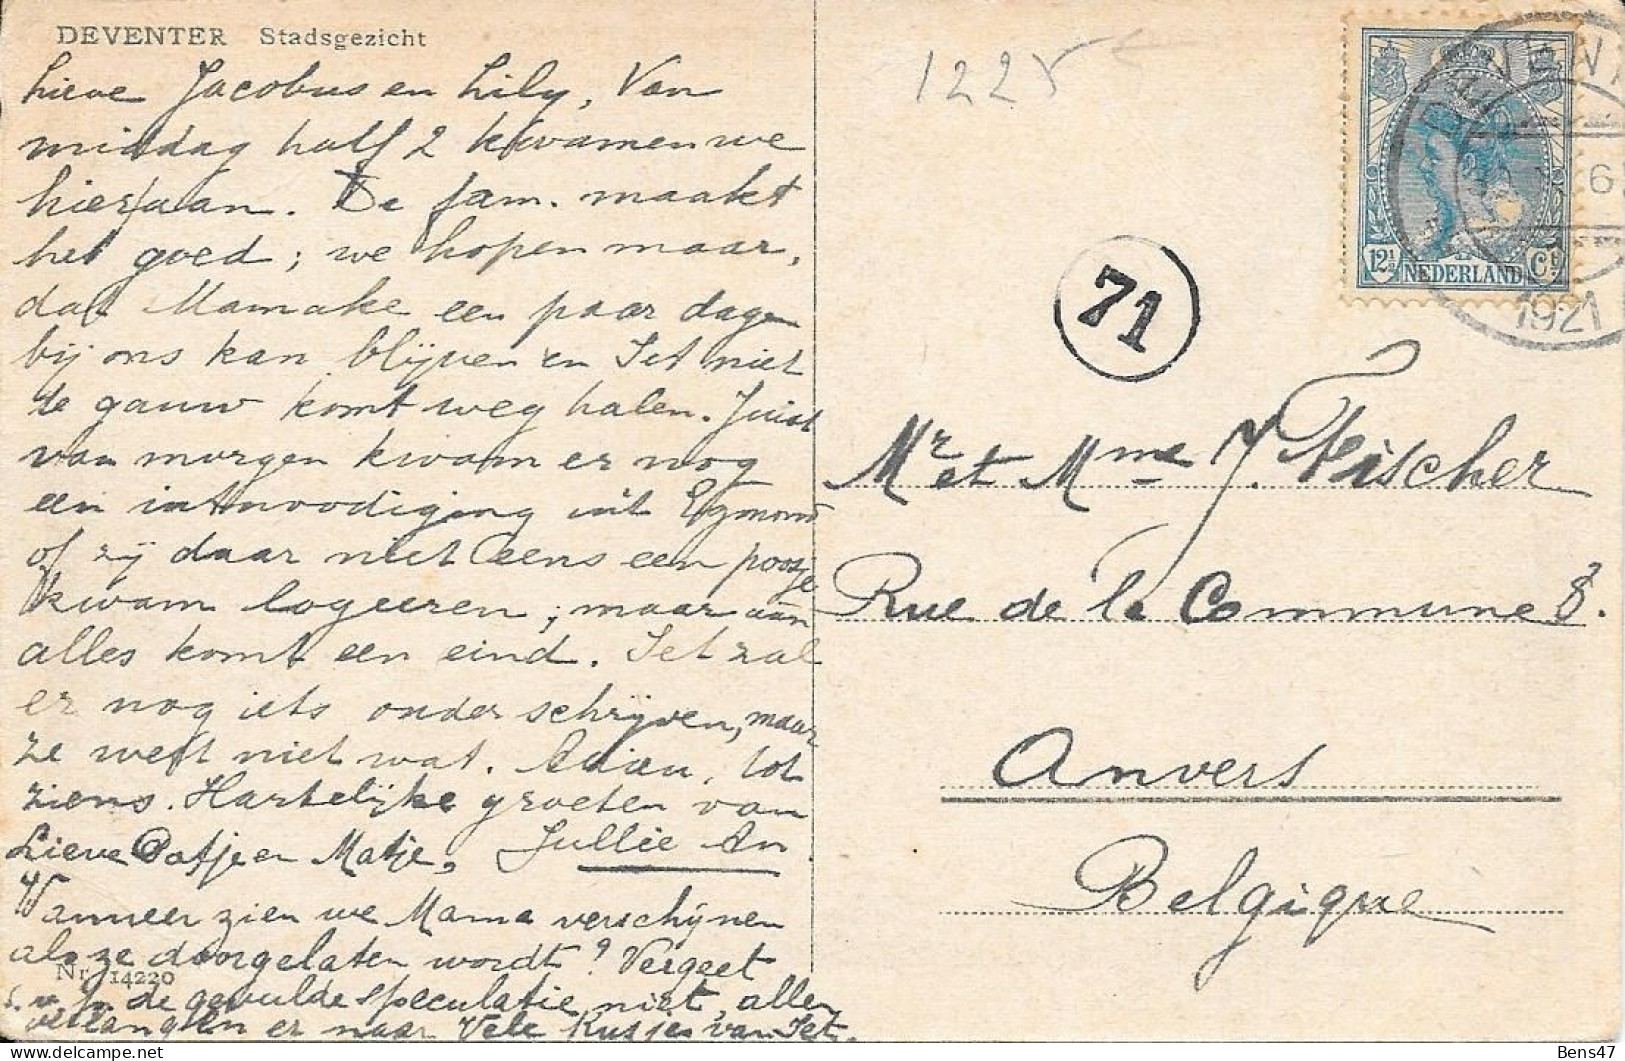 DEVENTER Stadsgezicht
Lieve Jacobus en Lily, Van
middag half 2 kwamen we
hier aan. De fam. maakt
het goed; we hopen maar,
dat Mamake een paar dagen
bij ons kan blijven en Jet niet
te gauw komt weg halen. Juist
van morgen kwam er nog
een uit Egmond
of zij daar niet eens een poosje
kwam logeeren; maar aan
alles komt een eind. Jet zal
er nog iets onder schrijven, maar
ze weet niet wat. Adieu, tot
ziens. Hartelijke groeten van
Jullie An.
Lieve Patje en Matje,
Wanneer zien we Mama verschijnen
als ze doorgelaten wordt? Vergeet
s.v.p. de gevulde speculatie niet, allen
verlangen er naar Vele kusjes van Jet.
Nr. 14220
1225
71
12½ Ct
NEDERLAND
6
1921
Mr et Mme J. Fischer
Rue de la Commune 8.
Anvers
Belgique
Bens47